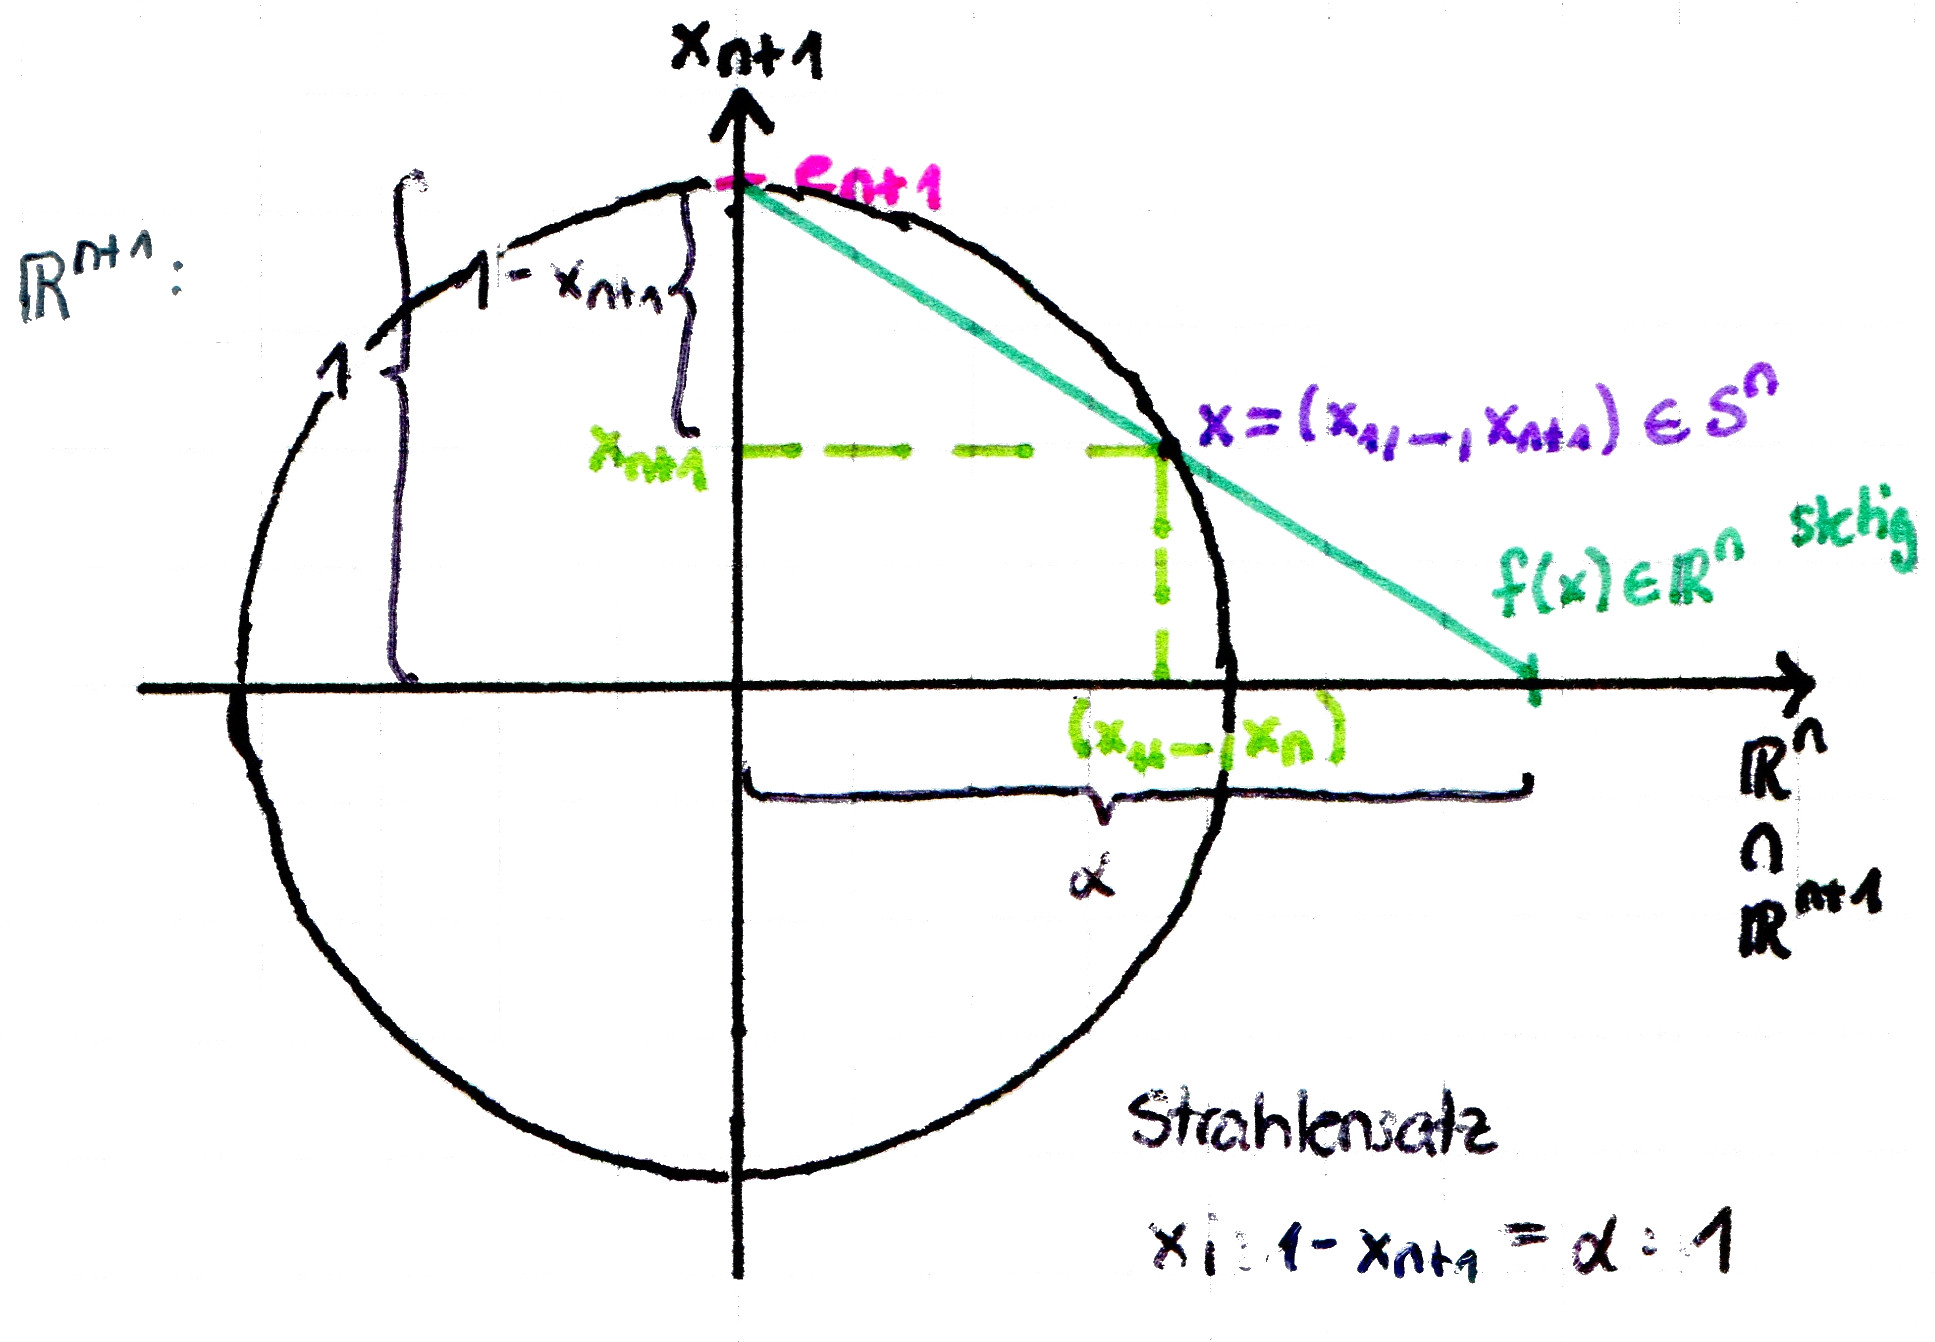 xₙ₊₁
eₙ₊₁
ℝⁿ⁺¹:
1 - xₙ₊₁
1
x = (x₁, –, xₙ₊₁) ∈ Sⁿ
xₙ₊₁
f(x) ∈ ℝⁿ stetig
(x₁, –, xₙ)
ℝⁿ
∩
ℝⁿ⁺¹
α
Strahlensatz
xᵢ : 1 - xₙ₊₁ = α : 1